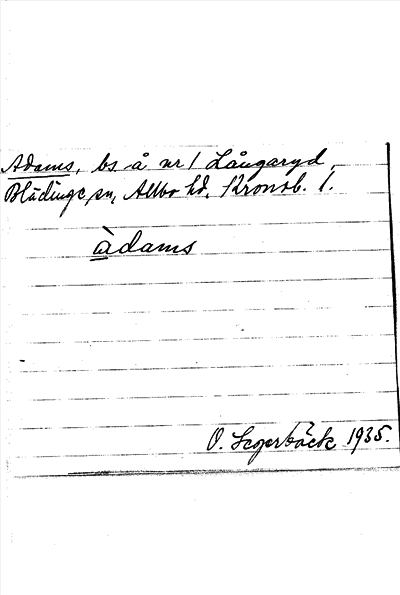 Adams, bs å nr 1 Långaryd,
Blädinge sn, Allbo hd, Kronob. l.
àdams
O. Segerbäck 1935.